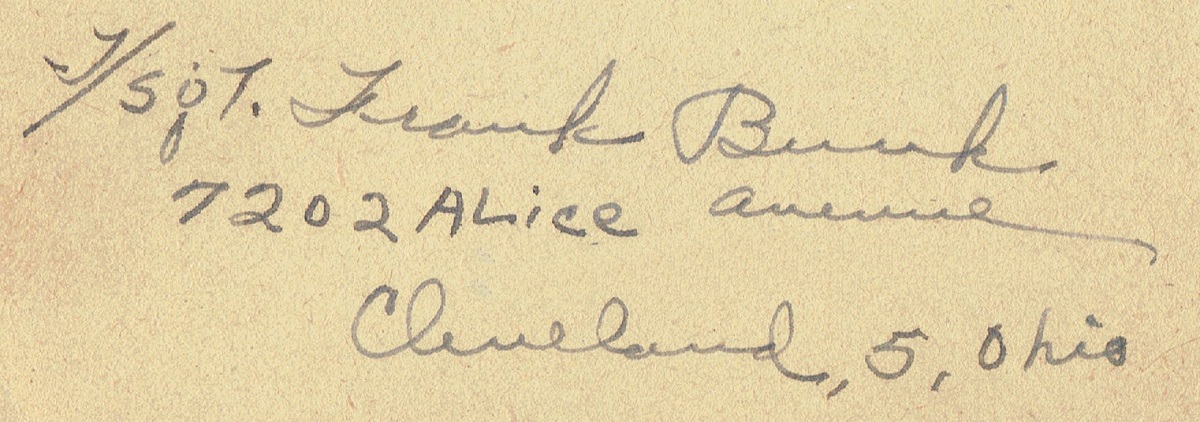 T/Sgt. Frank Bunk
7202 ALice avenue
Cleveland, 5, Ohio